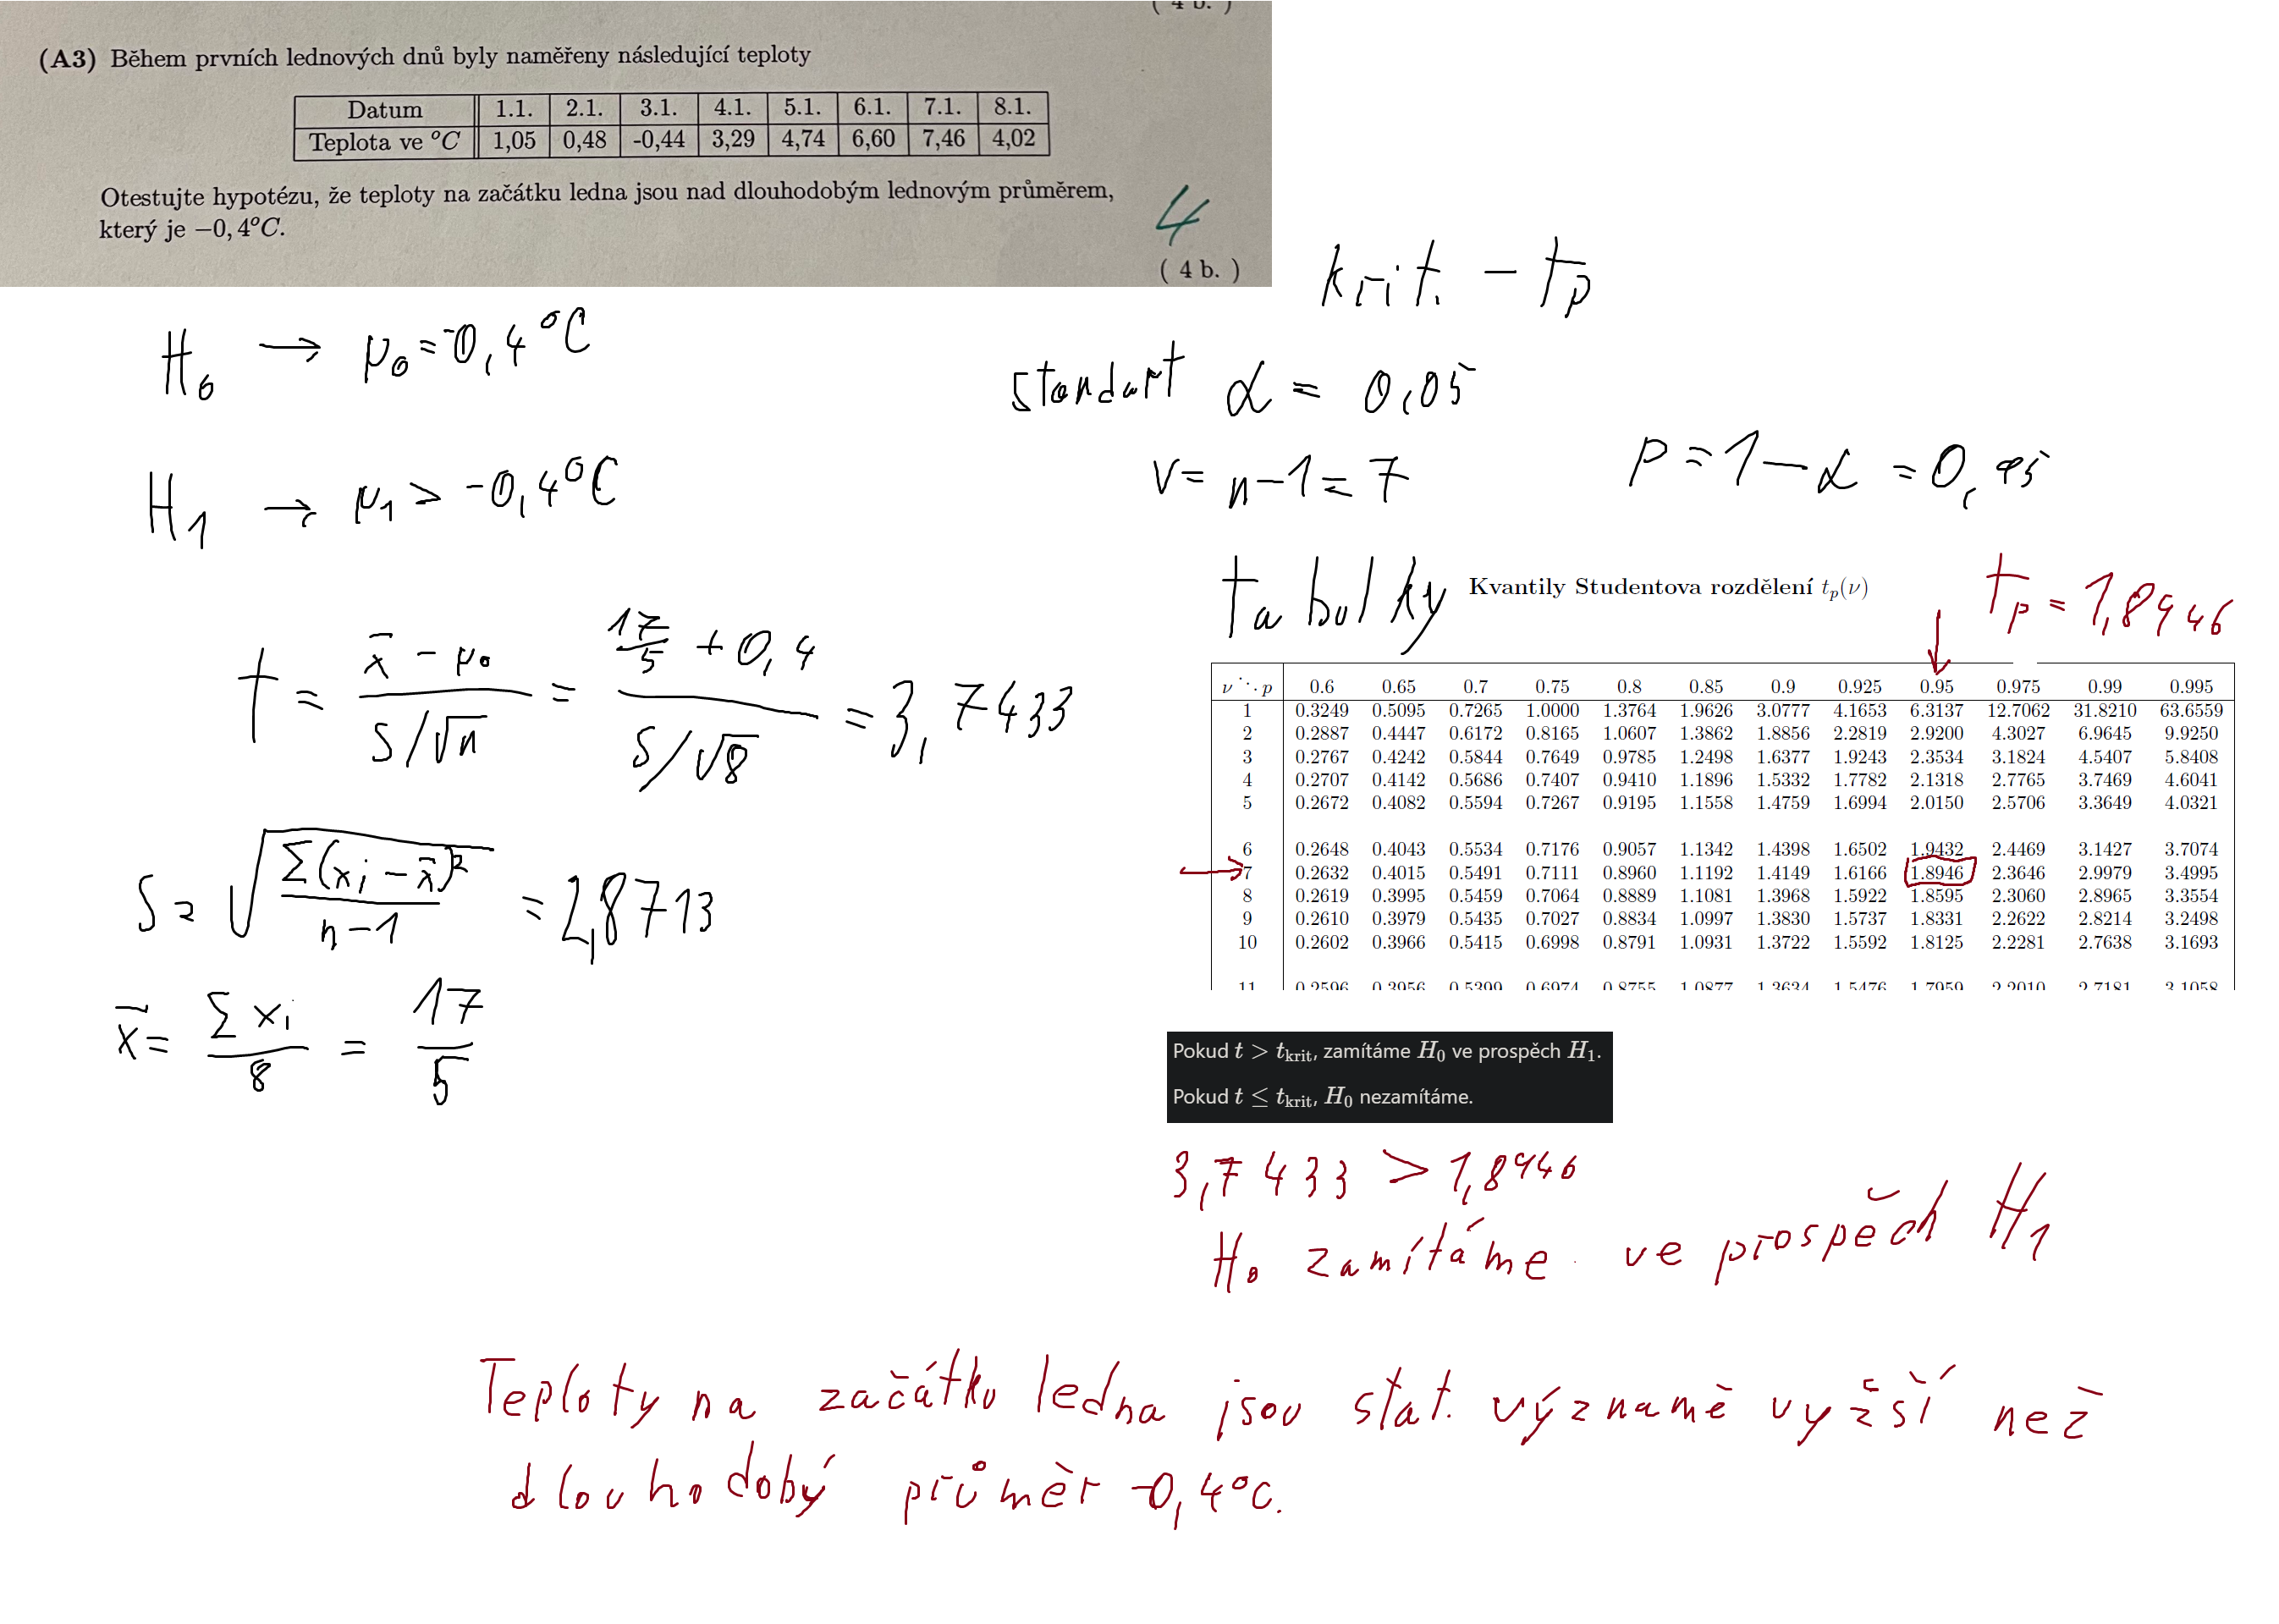 ( 4 b. )
(A3) Během prvních lednových dnů byly naměřeny následující teploty
Datum 1.1. 2.1. 3.1. 4.1. 5.1. 6.1. 7.1. 8.1.
Teplota ve °C 1,05 0,48 -0,44 3,29 4,74 6,60 7,46 4,02
Otestujte hypotézu, že teploty na začátku ledna jsou nad dlouhodobým lednovým průměrem,
který je −0,4°C.
4
( 4 b. )
H₀ → μ₀ = -0,4 °C
H₁ → μ₁ > -0,4 °C
t = (x̄ - μ₀)/(S/√n) = (17/5 + 0,4)/(S/√8) = 3,7433
S = √(Σ(xᵢ - x̄)²/(n-1)) = 2,8713
x̄ = Σxᵢ/8 = 17/5
krit. - tp
standart α = 0,05
ν = n-1 = 7
p = 1-α = 0,95
tabulky
Kvantily Studentova rozdělení tp(ν)
tp = 1,8946
ν ⋱ p 0.6 0.65 0.7 0.75 0.8 0.85 0.9 0.925 0.95 0.975 0.99 0.995
1 0.3249 0.5095 0.7265 1.0000 1.3764 1.9626 3.0777 4.1653 6.3137 12.7062 31.8210 63.6559
2 0.2887 0.4447 0.6172 0.8165 1.0607 1.3862 1.8856 2.2819 2.9200 4.3027 6.9645 9.9250
3 0.2767 0.4242 0.5844 0.7649 0.9785 1.2498 1.6377 1.9243 2.3534 3.1824 4.5407 5.8408
4 0.2707 0.4142 0.5686 0.7407 0.9410 1.1896 1.5332 1.7782 2.1318 2.7765 3.7469 4.6041
5 0.2672 0.4082 0.5594 0.7267 0.9195 1.1558 1.4759 1.6994 2.0150 2.5706 3.3649 4.0321
6 0.2648 0.4043 0.5534 0.7176 0.9057 1.1342 1.4398 1.6502 1.9432 2.4469 3.1427 3.7074
7 0.2632 0.4015 0.5491 0.7111 0.8960 1.1192 1.4149 1.6166 1.8946 2.3646 2.9979 3.4995
8 0.2619 0.3995 0.5459 0.7064 0.8889 1.1081 1.3968 1.5922 1.8595 2.3060 2.8965 3.3554
9 0.2610 0.3979 0.5435 0.7027 0.8834 1.0997 1.3830 1.5737 1.8331 2.2622 2.8214 3.2498
10 0.2602 0.3966 0.5415 0.6998 0.8791 1.0931 1.3722 1.5592 1.8125 2.2281 2.7638 3.1693
11 0.2596 0.3956 0.5399 0.6974 0.8755 1.0877 1.3634 1.5476 1.7959 2.2010 2.7181 3.1058
Pokud t > tkrit, zamítáme H₀ ve prospěch H₁.
Pokud t ≤ tkrit, H₀ nezamítáme.
3,7433 > 1,8946
H₀ zamítáme ve prospěch H₁
Teploty na začátku ledna jsou stat. významě vyžší než
dlouhodobý průměr -0,4°C.